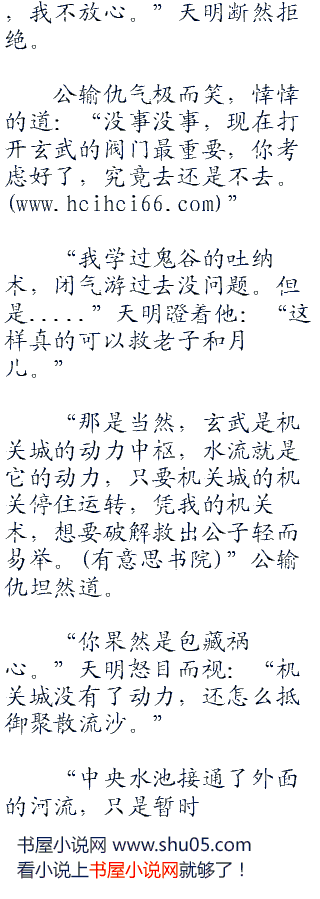 ，我不放心。”天明断然拒
绝。
公输仇气极而笑，悻悻
的道：“没事没事，现在打
开玄武的阀门最重要，你考
虑好了，究竟去还是不去。
(www.hcihci66.com)”
“我学过鬼谷的吐纳
术，闭气游过去没问题。但
是.....”天明瞪着他：“这
样真的可以救老子和月
儿。”
“那是当然，玄武是机
关城的动力中枢，水流就是
它的动力，只要机关城的机
关停住运转，凭我的机关
术，想要破解救出公子轻而
易举。(有意思书院)”公输
仇坦然道。
“你果然是包藏祸
心。”天明怒目而视：“机
关城没有了动力，还怎么抵
御聚散流沙。”
“中央水池接通了外面
的河流，只是暂时
书屋小说网 www.shu05.com
看小说上书屋小说网就够了！